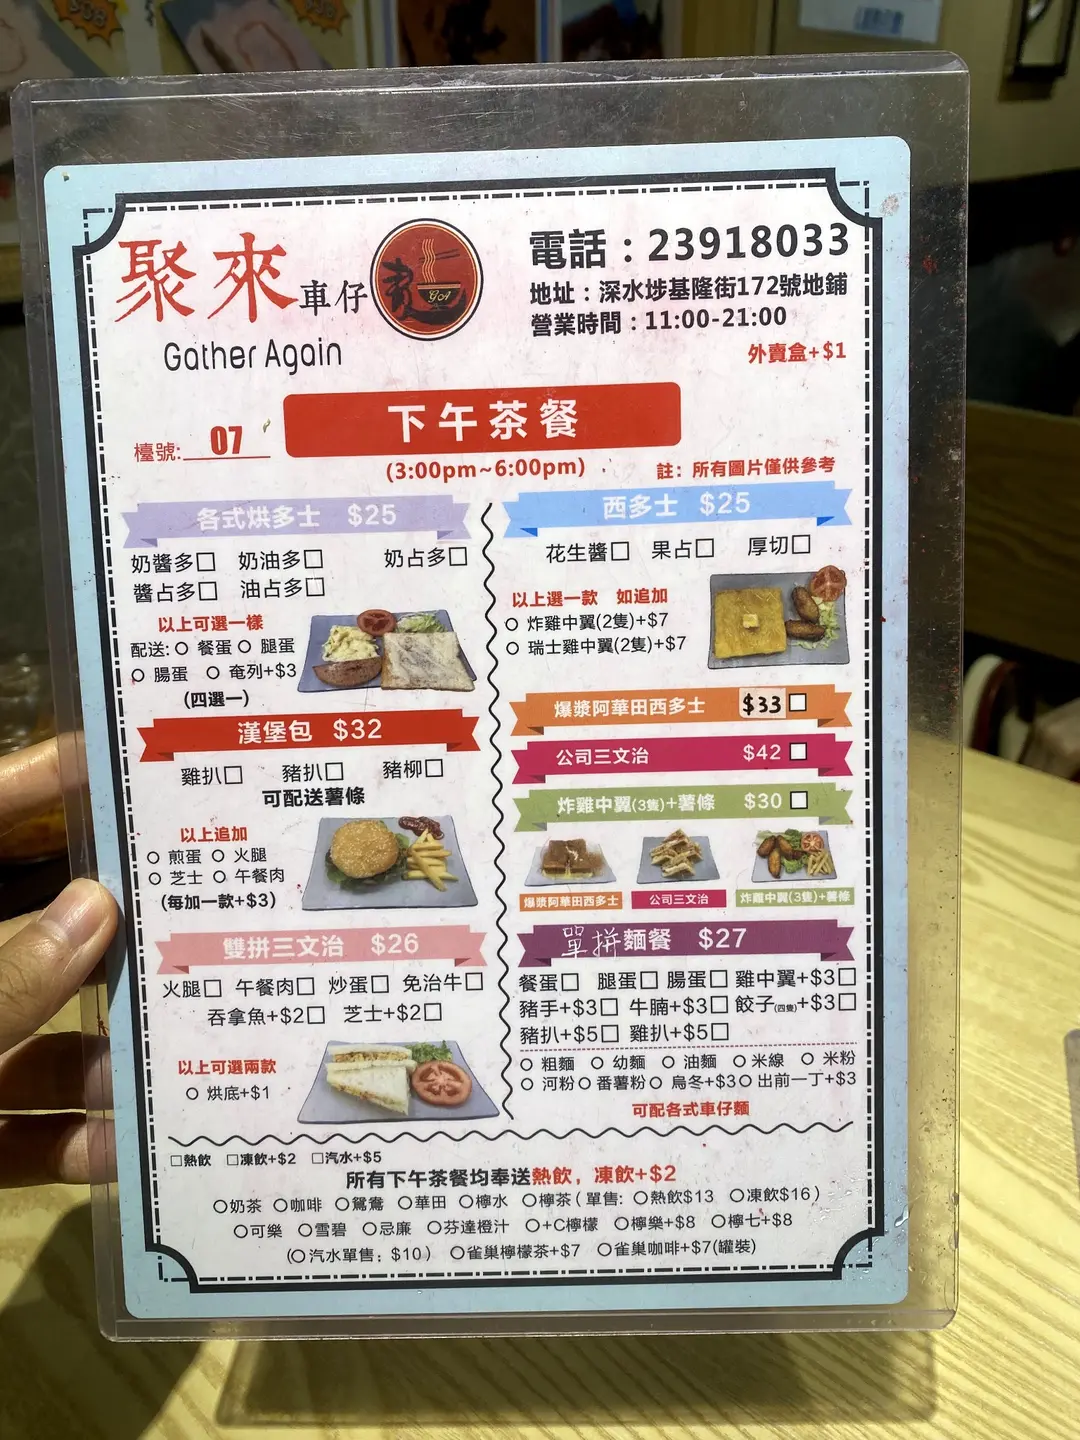 聚來車仔
Gather Again
電話：23918033
地址：深水埗基隆街172號地鋪
營業時間：11:00-21:00
外賣盒+$1
下午茶餐
檯號: 07
(3:00pm~6:00pm)
註：所有圖片僅供參考
各式烘多士 $25
奶醬多□ 奶油多□ 奶占多□
醬占多□ 油占多□
以上可選一樣
配送: ○ 餐蛋 ○ 腿蛋
○ 腸蛋 ○ 奄列+$3
(四選一)
漢堡包 $32
雞扒□ 豬扒□ 豬柳□
可配送薯條
以上追加
○ 煎蛋 ○ 火腿
○ 芝士 ○ 午餐肉
(每加一款+$3)
雙拼三文治 $26
火腿□ 午餐肉□ 炒蛋□ 免治牛□
吞拿魚+$2□ 芝士+$2□
以上可選兩款
○ 烘底+$1
西多士 $25
花生醬□ 果占□ 厚切□
以上選一款 如追加
○ 炸雞中翼(2隻)+$7
○ 瑞士雞中翼(2隻)+$7
爆漿阿華田西多士 $33 □
公司三文治 $42 □
炸雞中翼(3隻)+薯條 $30 □
爆漿阿華田西多士 公司三文治 炸雞中翼(3隻)+薯條
單拼麵餐 $27
餐蛋□ 腿蛋□ 腸蛋□ 雞中翼+$3□
豬手+$3□ 牛腩+$3□ 餃子(四隻)+$3□
豬扒+$5□ 雞扒+$5□
○ 粗麵 ○ 幼麵 ○ 油麵 ○ 米線 ○ 米粉
○ 河粉 ○ 番薯粉 ○ 烏冬+$3 ○ 出前一丁+$3
可配各式車仔麵
□熱飲 □凍飲+$2 □汽水+$5
所有下午茶餐均奉送熱飲，凍飲+$2
○奶茶 ○咖啡 ○鴛鴦 ○華田 ○檸水 ○檸茶 ( 單售: ○熱飲$13 ○凍飲$16 )
○可樂 ○雪碧 ○忌廉 ○芬達橙汁 ○+C檸檬 ○檸樂+$8 ○檸七+$8
(○汽水單售：$10 ) ○雀巢檸檬茶+$7 ○雀巢咖啡+$7(罐裝)